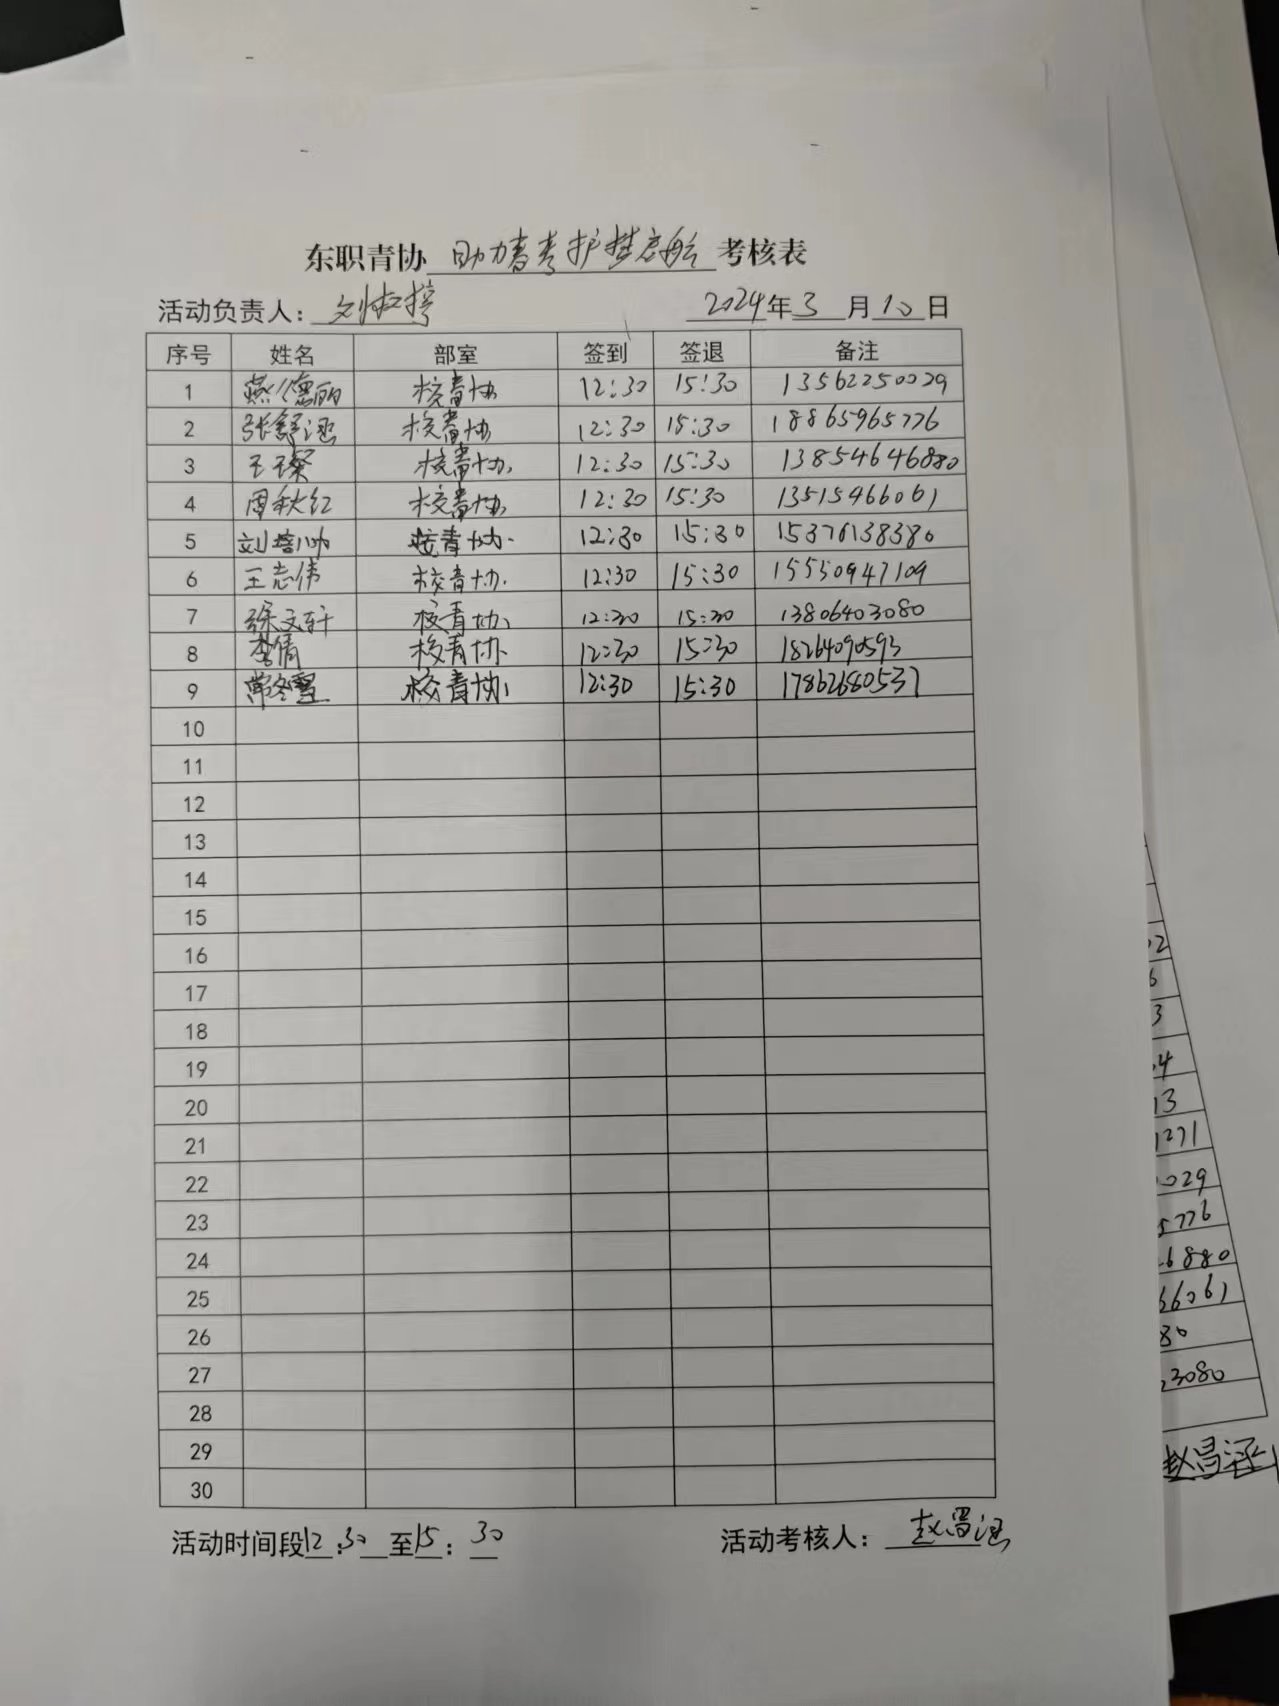 东职青协 助力春考护梦启航 考核表
活动负责人：刘淑婷 2024年3月10日
序号 姓名 部室 签到 签退 备注
1 燕德丽 校青协 12:30 15:30 13562250029
2 张舒涵 校青协 12:30 15:30 18865965776
3 王璨 校青协 12:30 15:30 13854646880
4 周秋红 校青协 12:30 15:30 13515466061
5 刘 校青协 12:30 15:30 15376138380
6 王志伟 校青协 12:30 15:30 15550947109
7 徐文轩 校青协 12:30 15:30 13806403080
8 李倩 校青协 12:30 15:30 18264090593
9 常冬雪 校青协 12:30 15:30 17862680537
10
11
12
13
14
15
16
17
18
19
20
21
22
23
24
25
26
27
28
29
30
活动时间段12:30至15:30 活动考核人：赵昌涵
02
6
3
04
13
1271
0029
5776
46880
66061
80
23080
赵昌涵